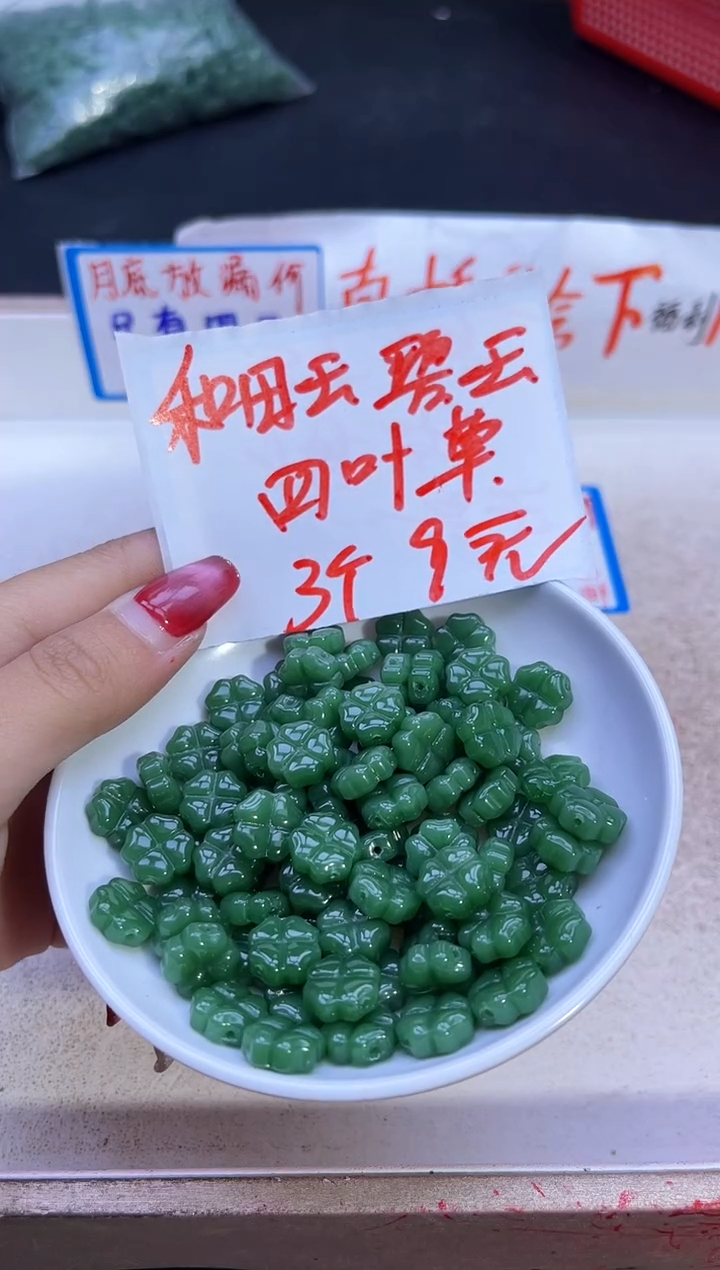 月底放漏
下福利
和田玉 碧玉
四叶草
3个 9元